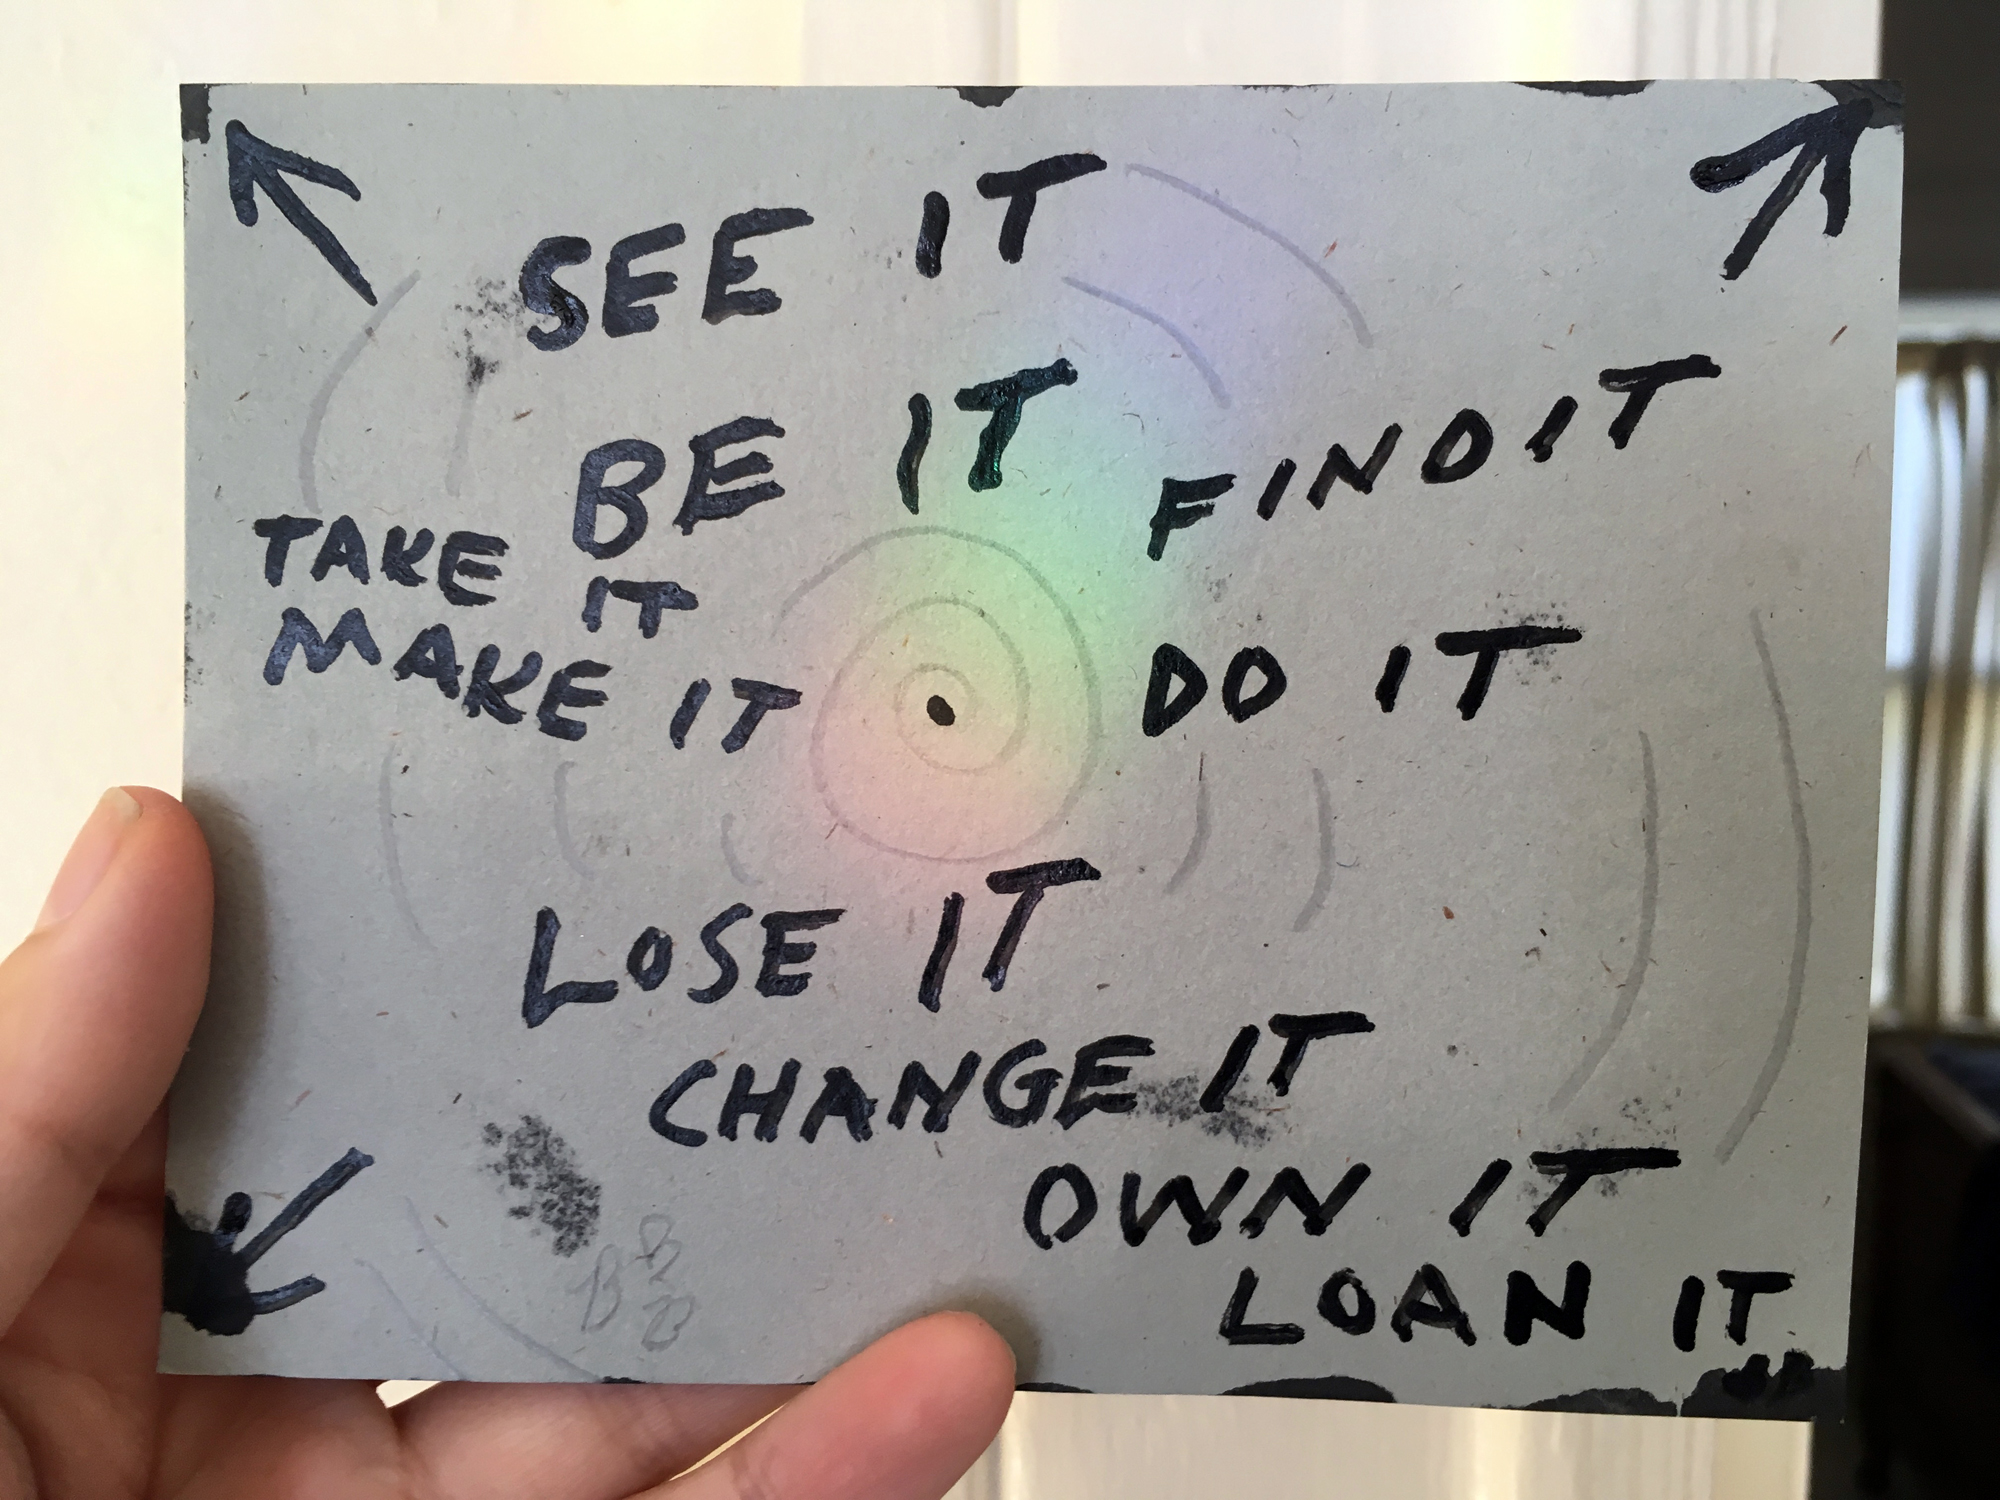 SEE IT
BE IT
FIND IT
TAKE IT
MAKE IT
DO IT
LOSE IT
CHANGE IT
OWN IT
LOAN IT